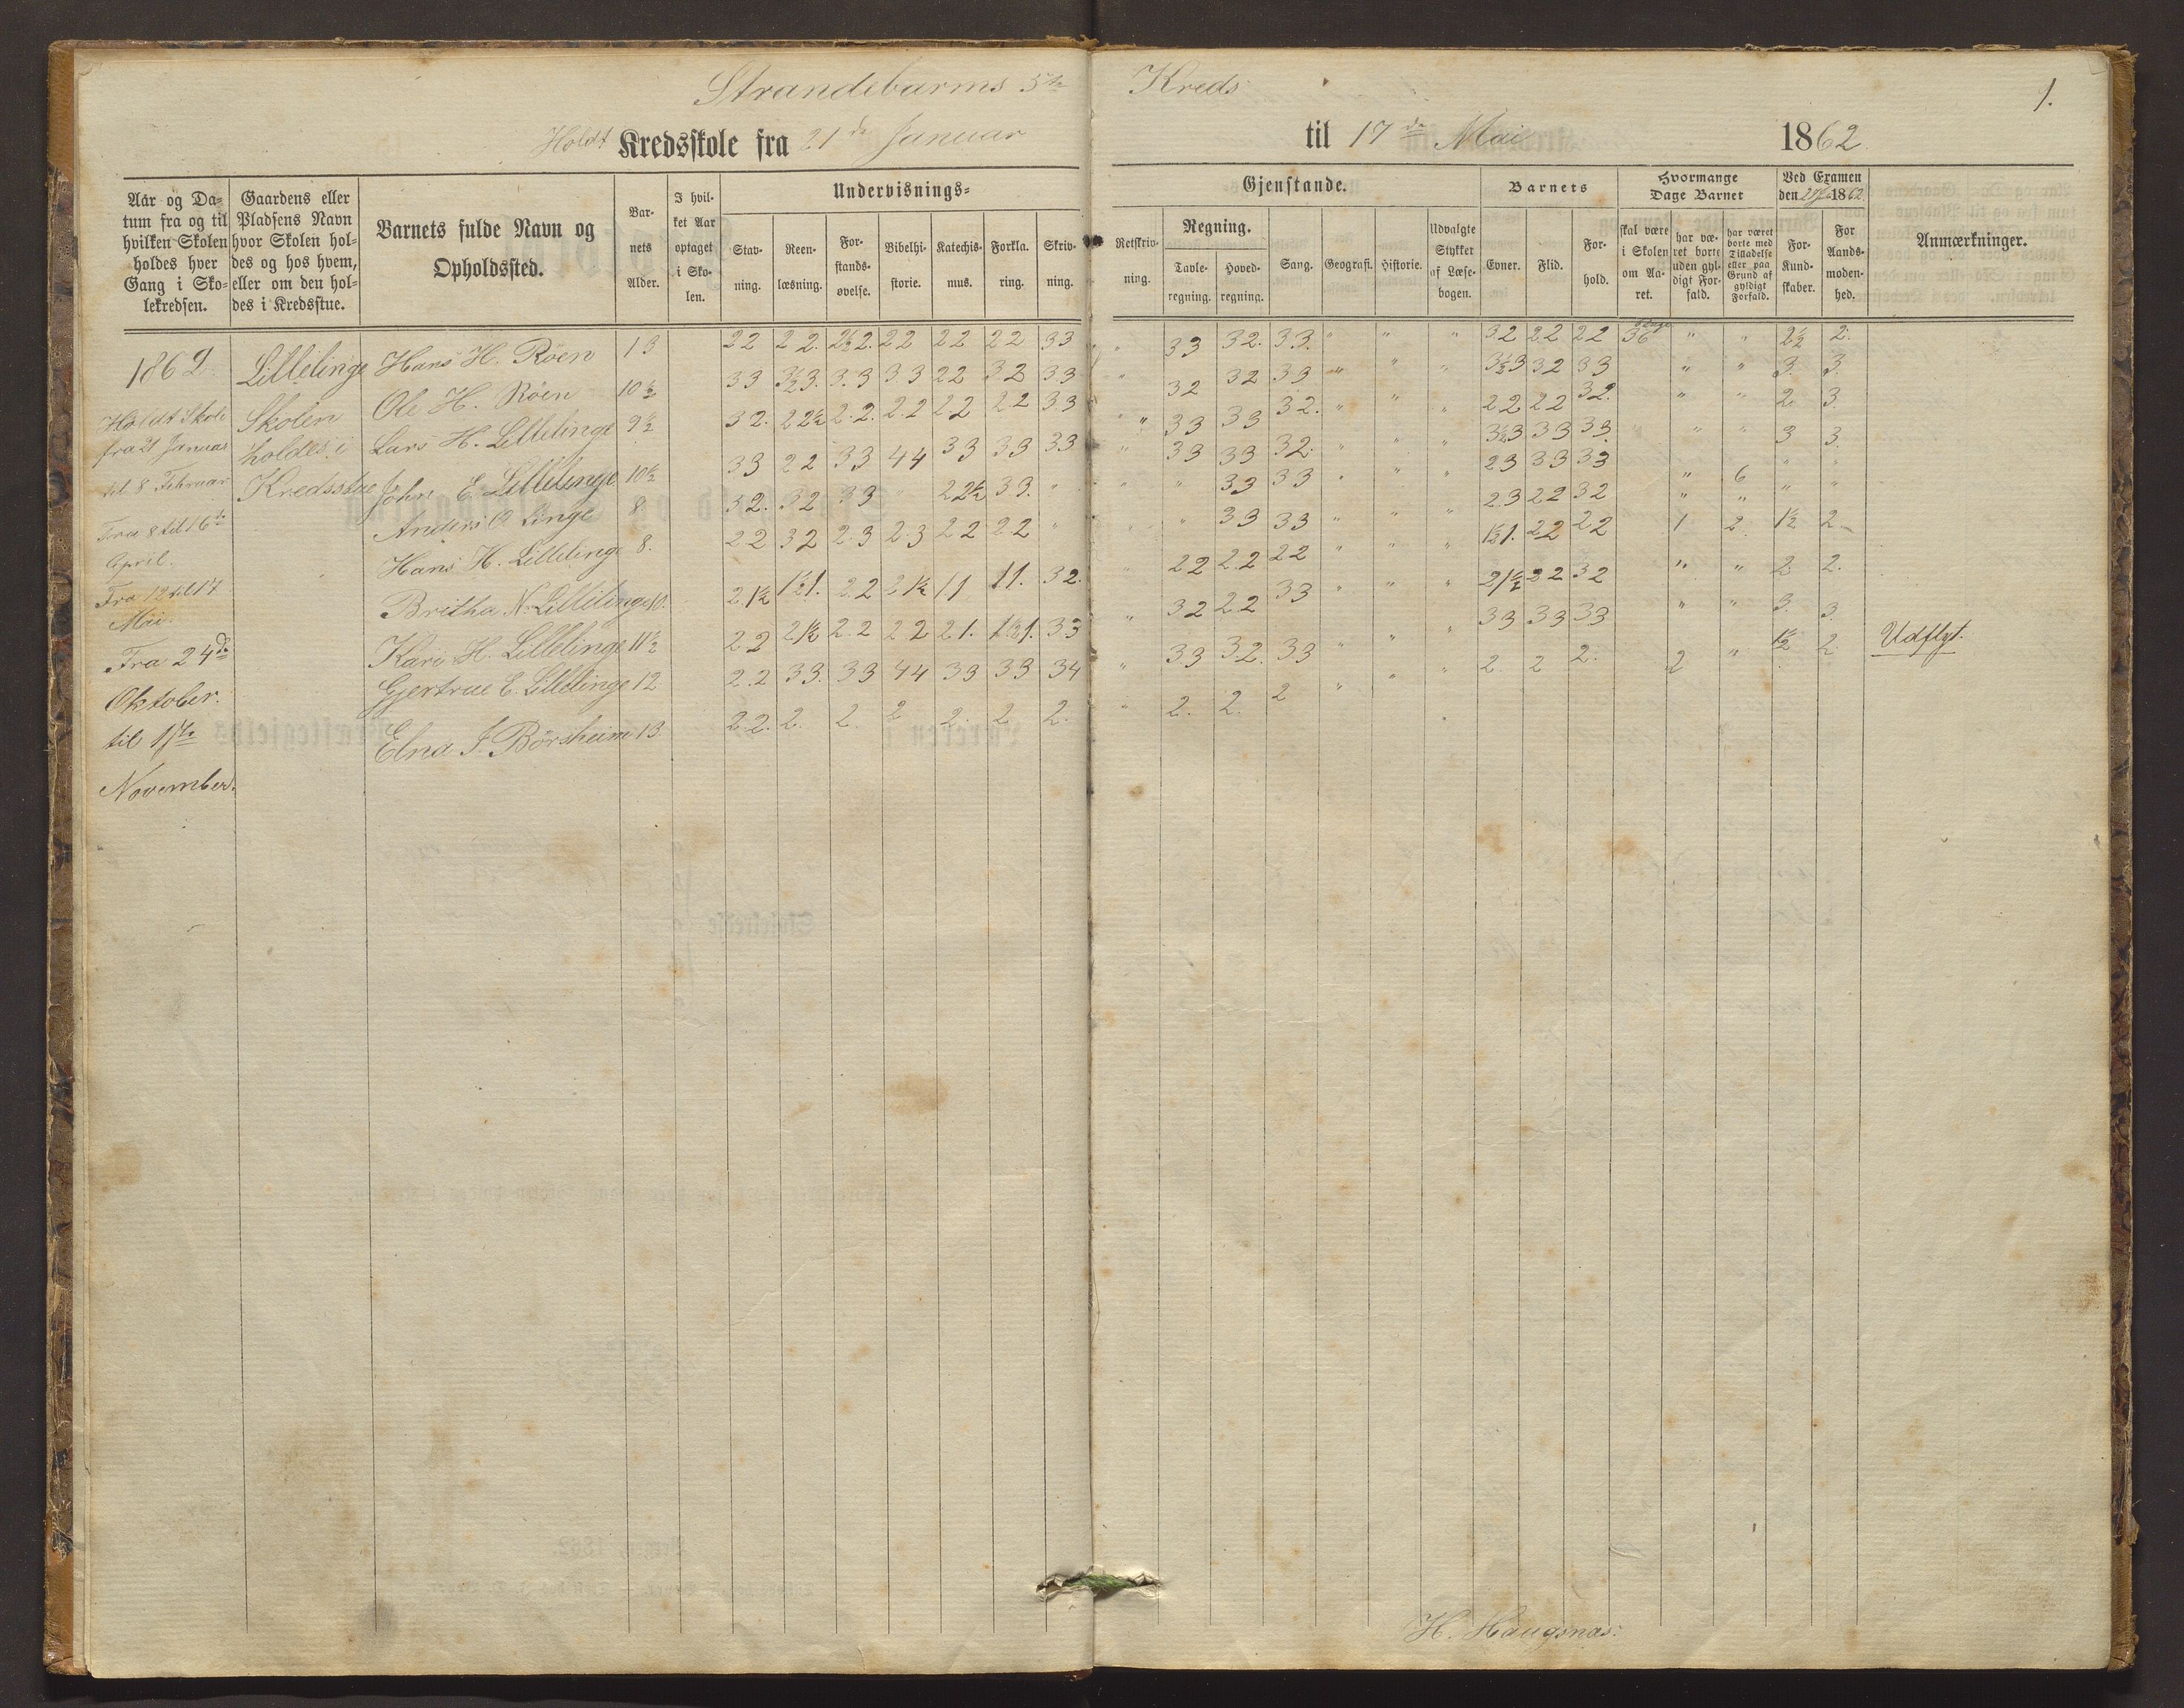 Strandebarms 5te Kreds
1.
Holdt Kredsskole fra 21de Januar til 17de Mai 1862
Aar og Datum fra og til hvilken Skolen holdes hver Gang i Skolekredsen.
Gaardens eller Pladsens Navn hvor Skolen holdes og hos hvem, eller om den holdes i Kredsstue.
Barnets fulde Navn og Opholdssted.
Barnets Alder.
I hvilket Aar optaget i Skolen.
Undervisnings-Gjenstande.
Stavning. Reenlæsning. Forstandsøvelse. Bibelhistorie. Katechismus. Forklaring. Skrivning.
Retskrivning. Regning. Tavleregning. Hovedregning. Sang. Geografi. Historie. Udvalgte Stykker af Læsebogen.
Barnets
Evner. Flid. Forhold.
Hvormange Dage Barnet
skal være i Skolen om Aaret. har været borte uden gyldigt Forfald. har været borte med Tilladelse eller paa Grund af gyldigt Forfald.
Ved Examen den 1862
For Kundskaber. For Aandsmodenhed.
Anmærkninger.
1862 Lillelinge Hans H. Röen 13 22 22. 2½2. 22 22 22 33 " 33 32. 33. " " " 32 22 22 36 " " 2½ 2.
Ole H. Röen 10½ 33 3½3. 3.3 33 22 32 33 " 32 32 33 " " " 3½3 32 33 " " 3. 3.
Holdt Skole Skolen Lars H. Lillelinge 9½ 32. 22½ 2.2. 2.2 22 22 33 " 33 33 32. " " " 22 22 32. " " 2. 3
fra 21 Januar holdes i
til 8 Februar Kredsstue John E. Lillelinge 10½ 33 22 33 44 33 33 33 " 33 33 32. " " " 3½3 33 33. " " 3 3.
Anders O Linge 8 32. 32 33 " 22½ 33. " " " 33 33 " " " 23 33 33 " 6 " "
Fra 8 til 16de
April. Hans H. Lillelinge 8. 22 32 2.3 2.3 22 22 " " " 33 33 " " " 2.3 22 32 " " " "
Fra 12 til 17 Britha N. Lillelinge 10. 2.1½ 1½1. 22 21½ 11 11. 32. " 22 2.2 22 " " " 1½1. 22 22 1 2 1½ 2
Mai.
Fra 24de Kari H. Lillelinge 11½ 22 21½ 2.2 22 21. 1½1. 33 " 32 22 33 " " " 21½ 22 32 " " 2 2.
Oktober. Gjertrue E. Lillelinge 12 2.2 33. 33 44 33 33 34 " 33 32. 33 " " " 33 33 33 " " 3. 3.
til 1ste Elna J. Börsheim 13. 2.2. 2. 2. 2 2. 2 2. " 2. 2. 2 " " " 2 2 2. 2 " 1½ 2. Udflyt.
November.
H. Haugsnæs: